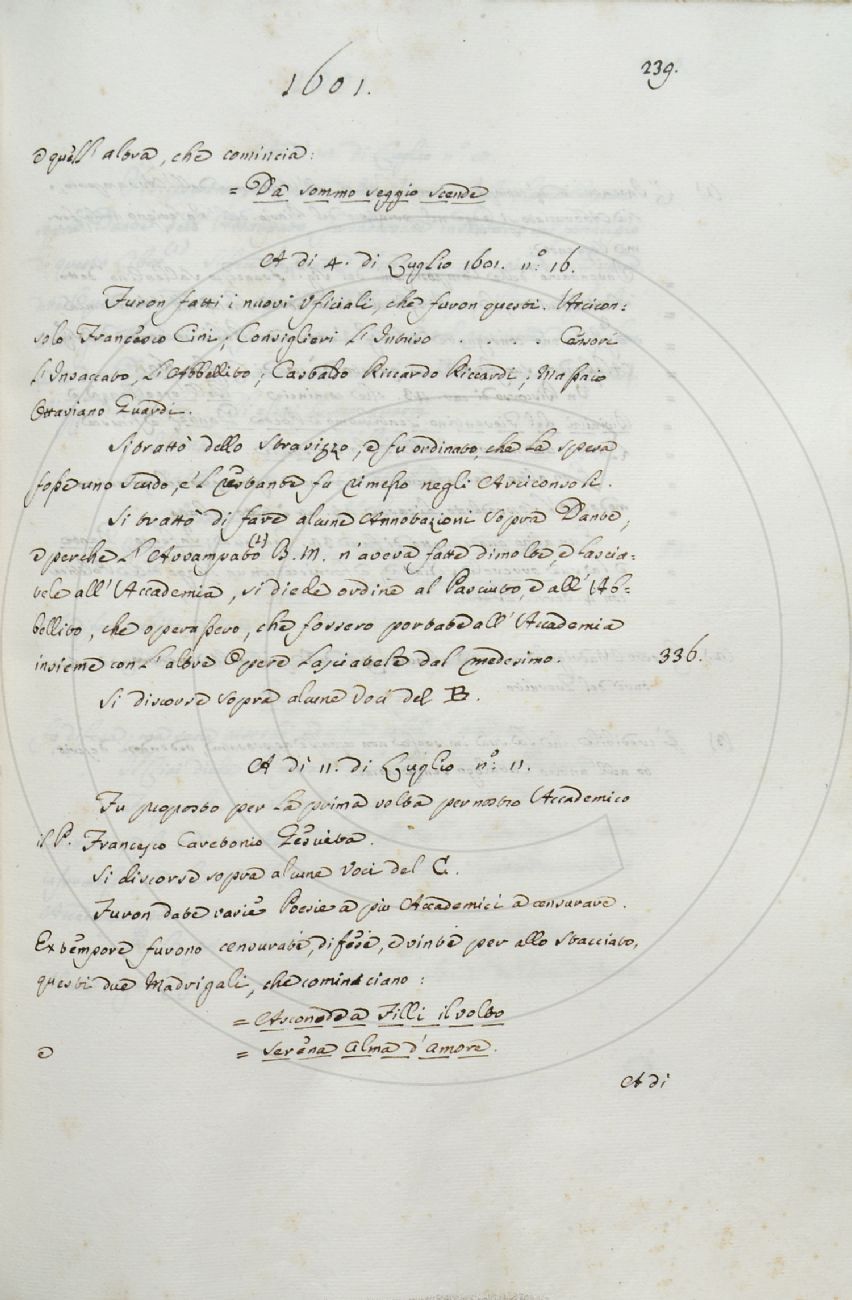 1601.
239.
e quell'altra, che comincia:
= Da sommo seggio scende
A dì 4. di Luglio 1601. n.° 16.
Furon fatti i nuovi Uficiali, che furon questi. Arcicon:
solo Francesco Cini; Consiglieri L'Intriso . . . . . Censori
L'Insaccato, L'Abbellito; Castaldo Riccardo Riccardi; Massaio
Ottaviano
Si trattò dello Stravizzo, e fu ordinato che la spesa
fosse uno Scudo, e 'l restante fu rimesso negli Arciconsoli.
Si trattò di fare alcune Annotazioni sopra Dante,
e perchè L'Avvampato (1) B. M. n'aveva fatte dimolte, e lascia:
tele all'Accademia, si diede ordine al Pasciuto, e all'Ab:
bellito, che operassero, che fossero portate all'Accademia
insieme con l'altre Opere lasciatele dal medesimo.
336.
Si discorse sopra alcune Voci del B.
A dì 11. di Luglio n.° 11.
Fu proposto per la prima volta per nostro Accademico
il P. Francesco Gesuita.
Si discorse sopra alcune Voci del C.
Furon date varie Poesie a più Accademici a censurare.
Extempore furono censurate, difese, e vinte per allo Stacciato,
questi due Madrigali, che cominciano:
= Ascondea Filli il volto
e = Serena Alma d'amore.
A dì